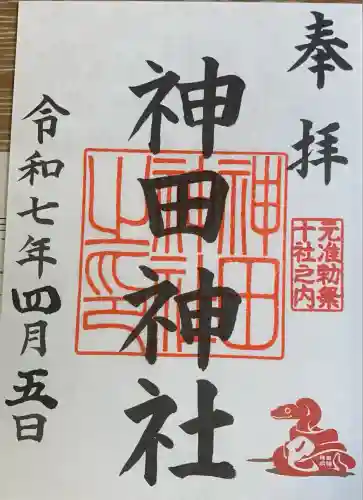 奉拝
元准勅祭
十社之内
神田神社
神田
神社
之印
令和七年四月五日